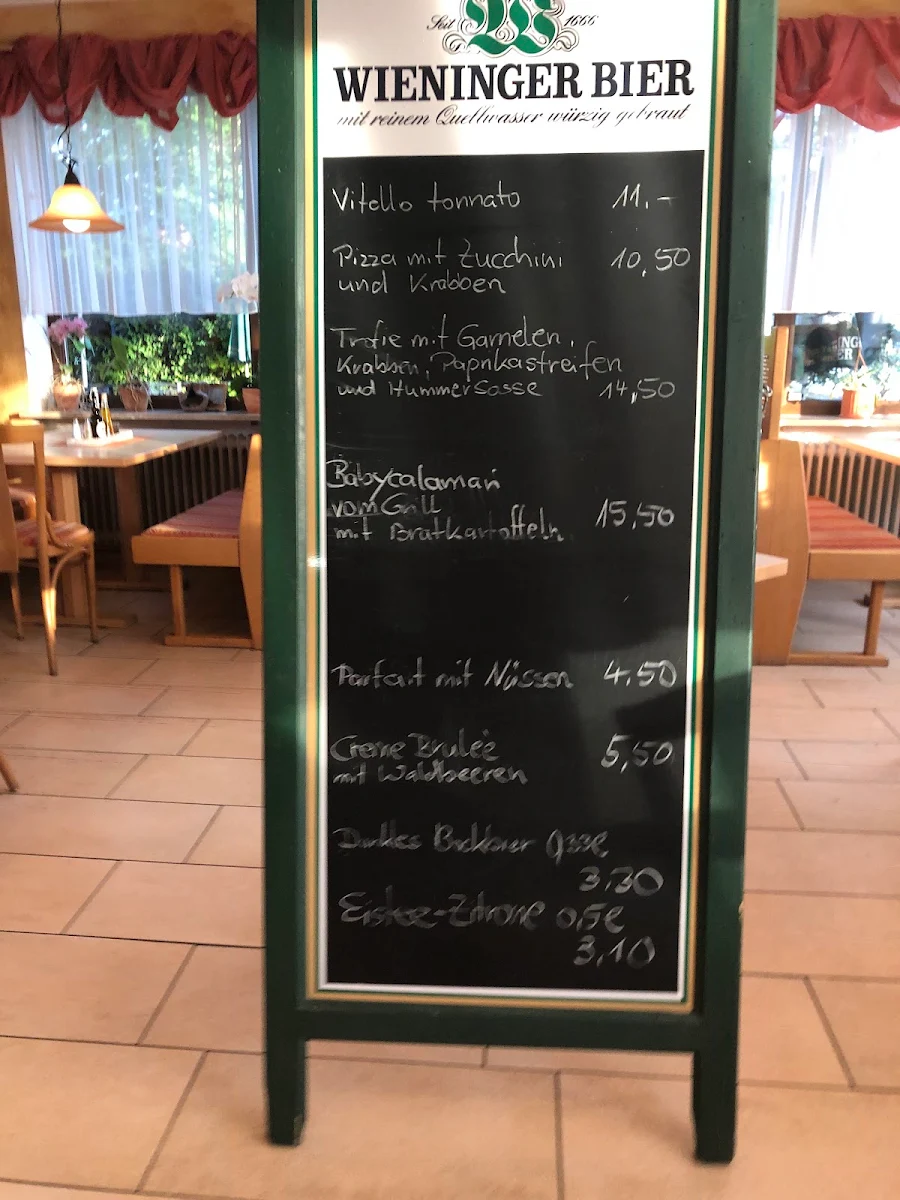 Seit 1666
WIENINGER BIER
mit reinem Quellwasser würzig gebraut
Vitello tonnato 11,-
Pizza mit Zucchini 10,50
und Krabben
Trofie mit Garnelen,
Krabben, Paprikastreifen
und Hummersosse 14,50
Babycalamari
vom Grill
mit Bratkartoffeln 15,50
Parfait mit Nüssen 4,50
Creme Brulée 5,50
mit Waldbeeren
Dunkles
3,30
Eistee-Zitrone 0,5l
3,10